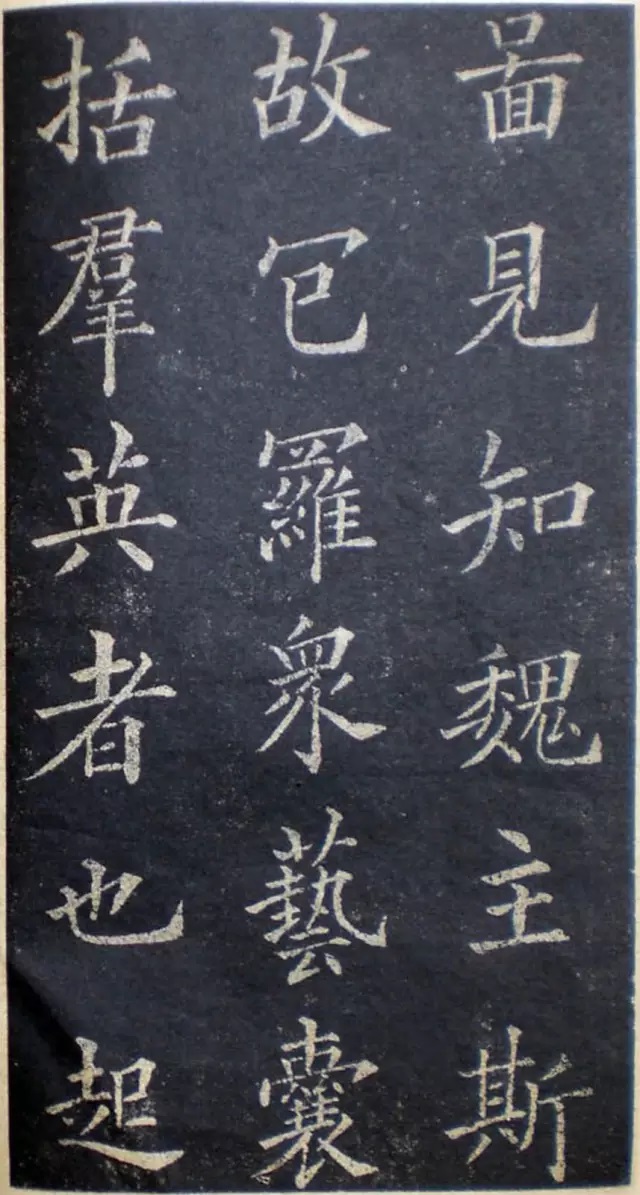 啚見知魏主斯
故包羅衆藝囊
括羣英者也起